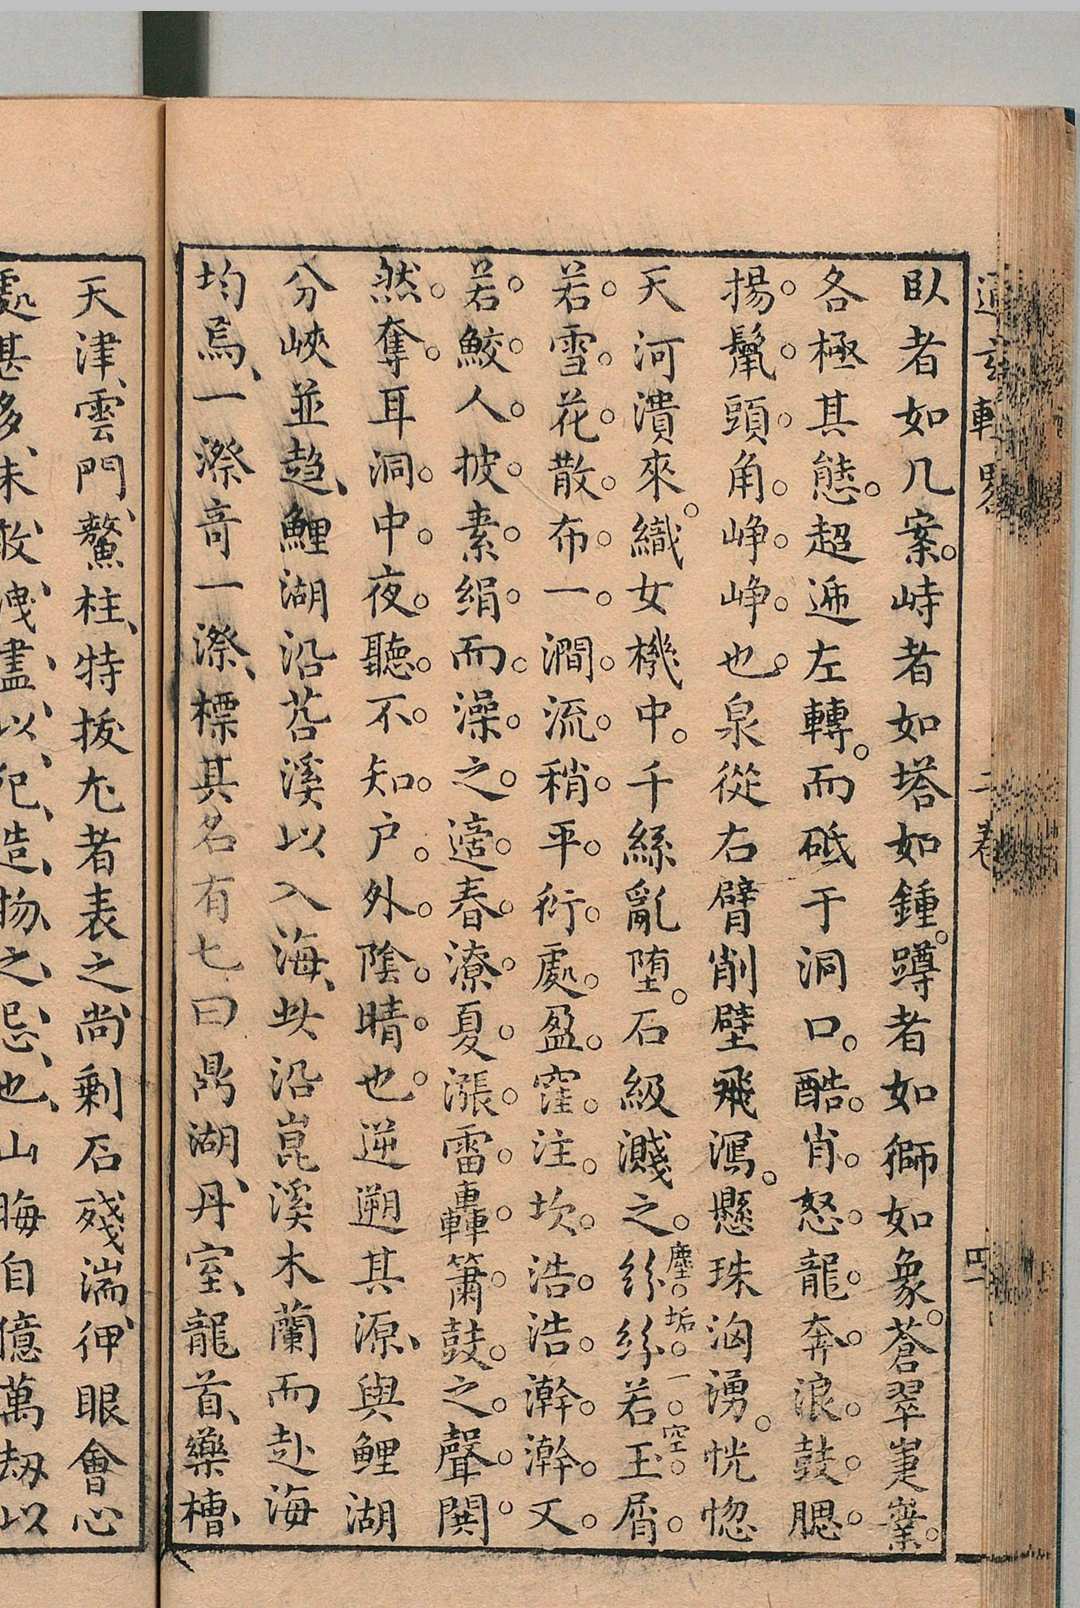 臥者如几案峙者如塔如鍾蹲者如獅如象蒼翠崔嵂
各極其態超遞左轉而砥于洞口酷肖怒龍奔浪鼓腮
揚鬣頭角崢崢也泉從右臂削壁飛瀉懸珠洶湧恍惚
天河潰來織女機中千絲亂墮石級濺之絲絲若玉屑
塵垢一空
若雪花散布一澗流稍平衍處盈窪注坎浩浩瀚瀚又
若鮫人披素絹而澡之適春潦夏漲雷轟簫鼓之聲闐
然奪耳洞中夜聽不知户外陰晴也逆遡其源與鯉湖
分峽並趋鯉湖沿莒溪以入海此沿崑溪木蘭而赴海
均焉一漈奇一漈標其名有七曰鼎湖丹室龍首藥槽
天津雲門鰲柱特拔尤者表之尚剩石殘湍押眼會心
處甚多未敢洩盡以犯造物之忌也山晦自億萬劫以
二卷
四